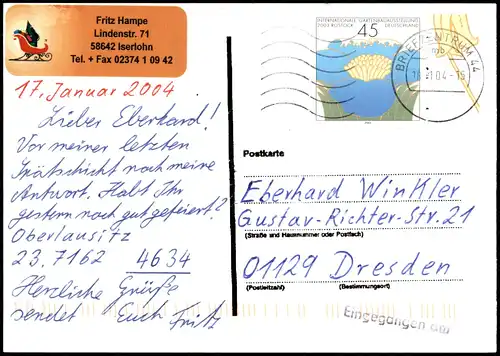 Fritz Hampe
Lindenstr. 71
58642 Iserlohn
Tel. + Fax 02374 1 09 42
17. Januar 2004
Lieber Eberhard!
Vor meiner letzten
Spätschicht noch meine
Antwort. Habt Ihr
gestern noch gut gefeiert?
Oberlausitz
23.7162 4634
Herzliche Grüße
sendet Euch Fritz
INTERNATIONALE GARTENBAUAUSSTELLUNG
2003 ROSTOCK DEUTSCHLAND
45
BRIEFZENTRUM 44
mb
.04-15
Postkarte
Eberhard Winkler
Gustav-Richter-Str. 21
(Straße und Hausnummer oder Postfach)
01129 Dresden
(Postleitzahl) (Bestimmungsort)
Eingegangen am